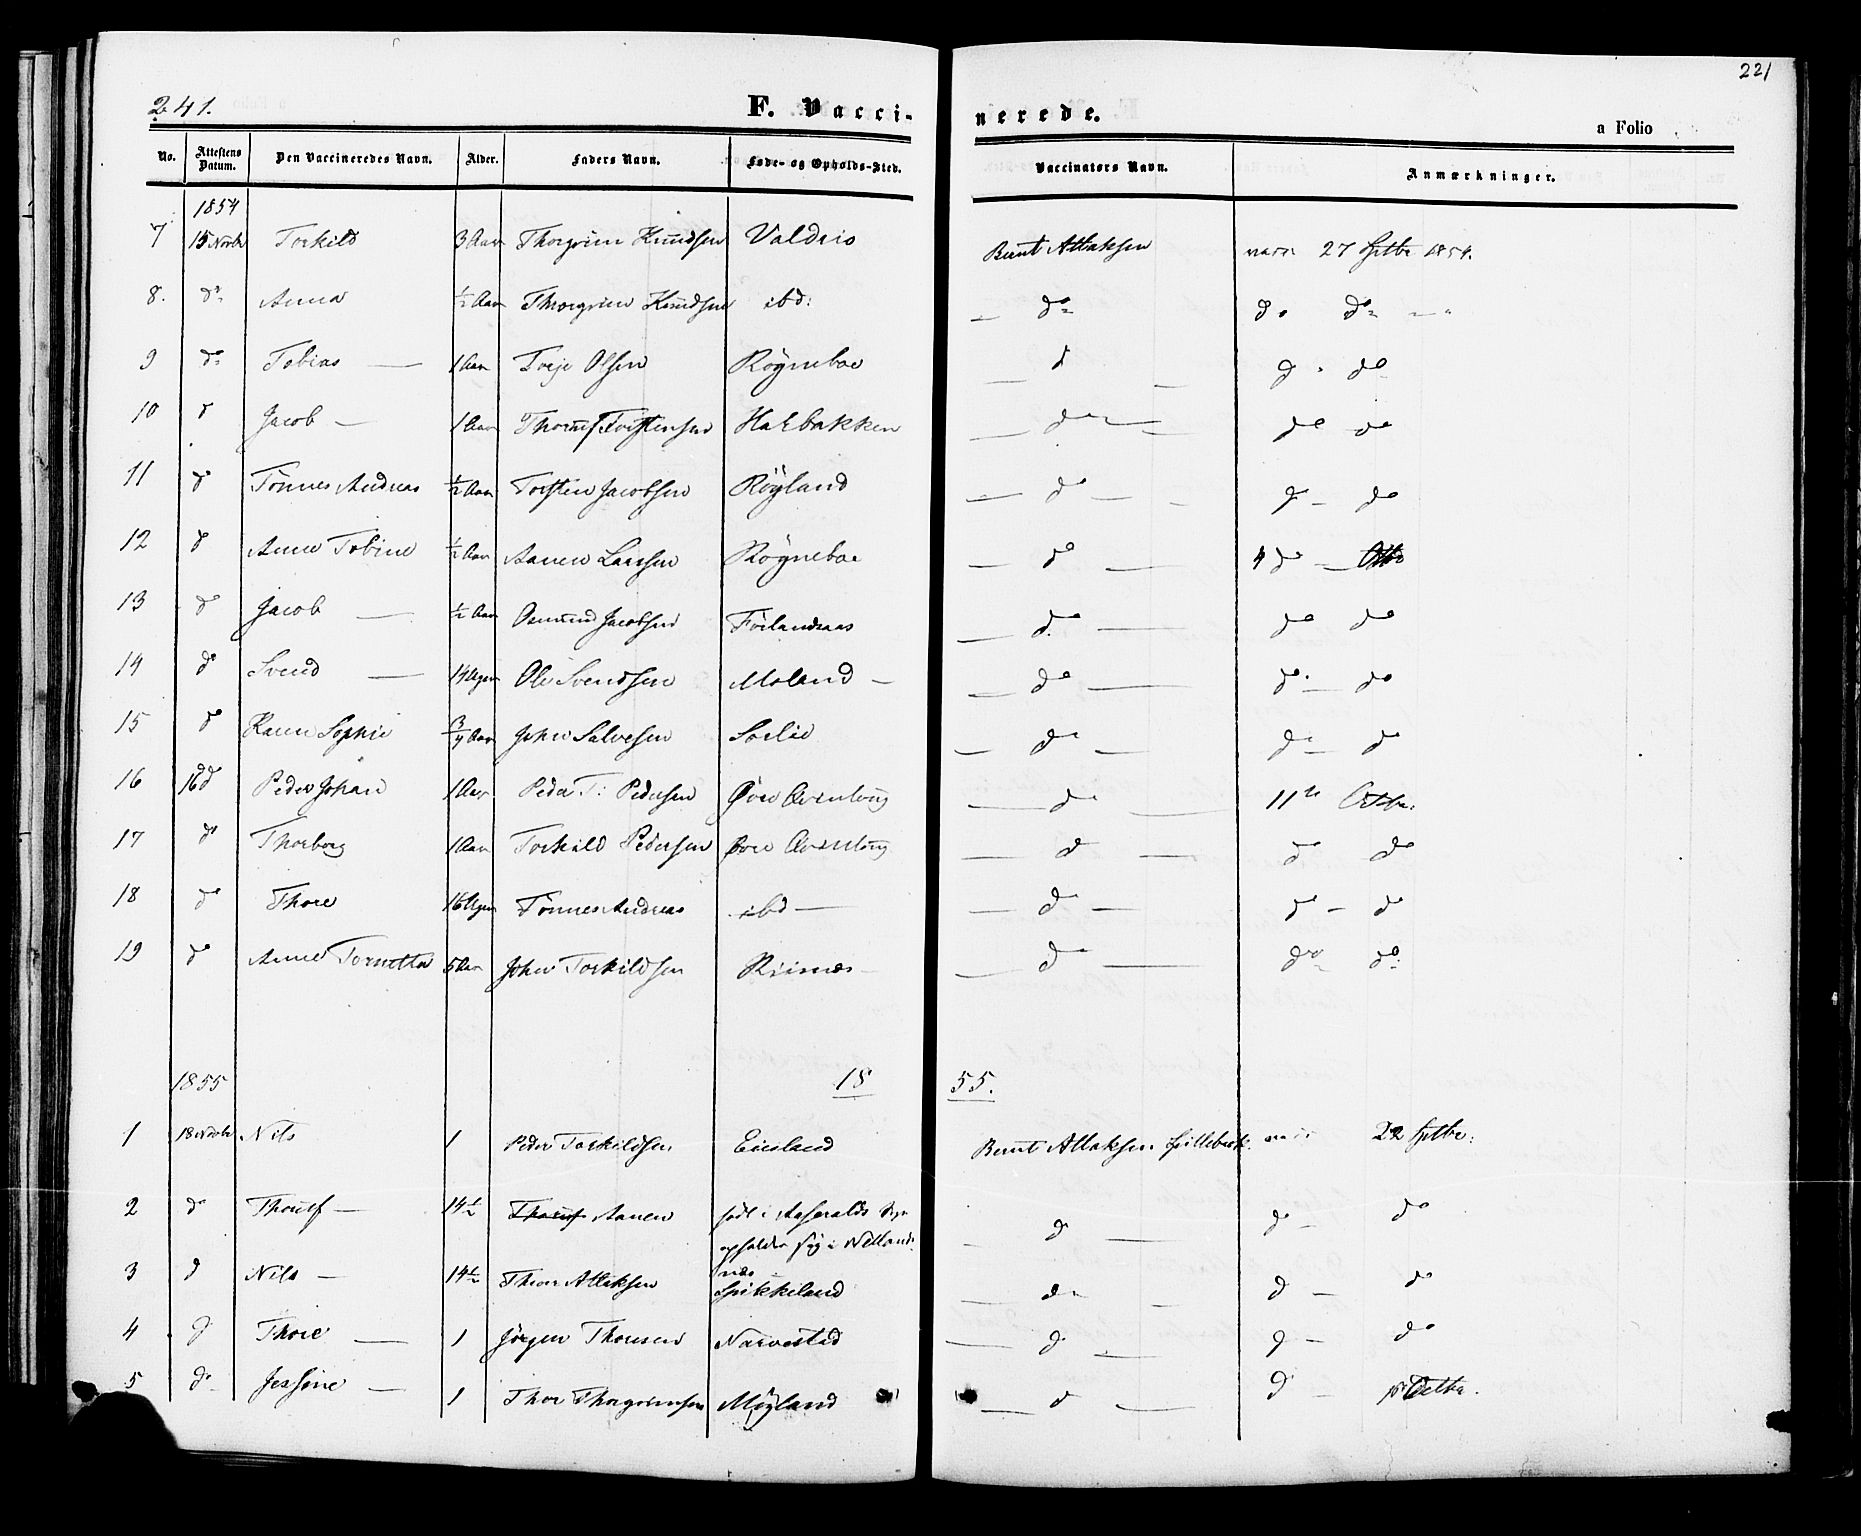 221
241.
F. Vacci-
nerede.
a Folio
No. Attestens Datum. Den Vaccineredes Navn. Alder. Faders Navn. Føde- og Opholds-Sted. Vaccinators Navn. Anmærkninger.
1854
7 15 Novbr Torkild 3 Aar Thorgrim Knudsen Valdris Bernt Atlaksen vacc. 27 Septbr 1854.
8. do Anna ½ Aar Thorgrim Knudsen ibd: — do do do
9 do Tobias — 1 Aar Terje Olsen Røgneboe — d — d do
10 d Jacob — 1 Aar Thorsten Halbakken — do — do do
11 do Tønnes Andreas ½ Aar Torsten Jacobsen Røyland — do — d — do
12 do Anne Tobine ½ Aar Aanen Larsen Røgneboe — do — 4 do — Otbr
13 do Jacob — ½ Aar Osmund Jacobsen Førlandsaas — do — do do
14 do Svend — 14 Ugen Ole Svendsen Moland — — do — do — do
15 do Karen Sophie ¾ Aar John Salvesen Sorlie — do — do — do
16 16 d Peder Johan 1 Aar Peder T: Pedersen Øvre — do — 11te Octbr.
17 do Thorborg 1 Aar Torkild Pedersen Øvre — d — do do
18 do Thore 16 Ugen Tønnes Andreas ibd — — do — do — do
19 do Anne Tornette 5 Aar John Torkildsen Risnes — — do — do do
1855
18 55.
1 18 Novbr Nils 1 Peder Torkildsen Eiesland Bernt Atlaksen vacc 22 Septbr:
2 do — 14½ Aanen født i Aaseralds
opholder sig i Netland
næs
— d — do — do
3 d Nils — 14½ Thore Atlaksen — do — d — do
4 d Thore — 1 Jörgen Thoresen Narvestad — d — d — do
5 do Jessine — 1 Thore Thorgrimsen Møgland — d — d — Octbr.